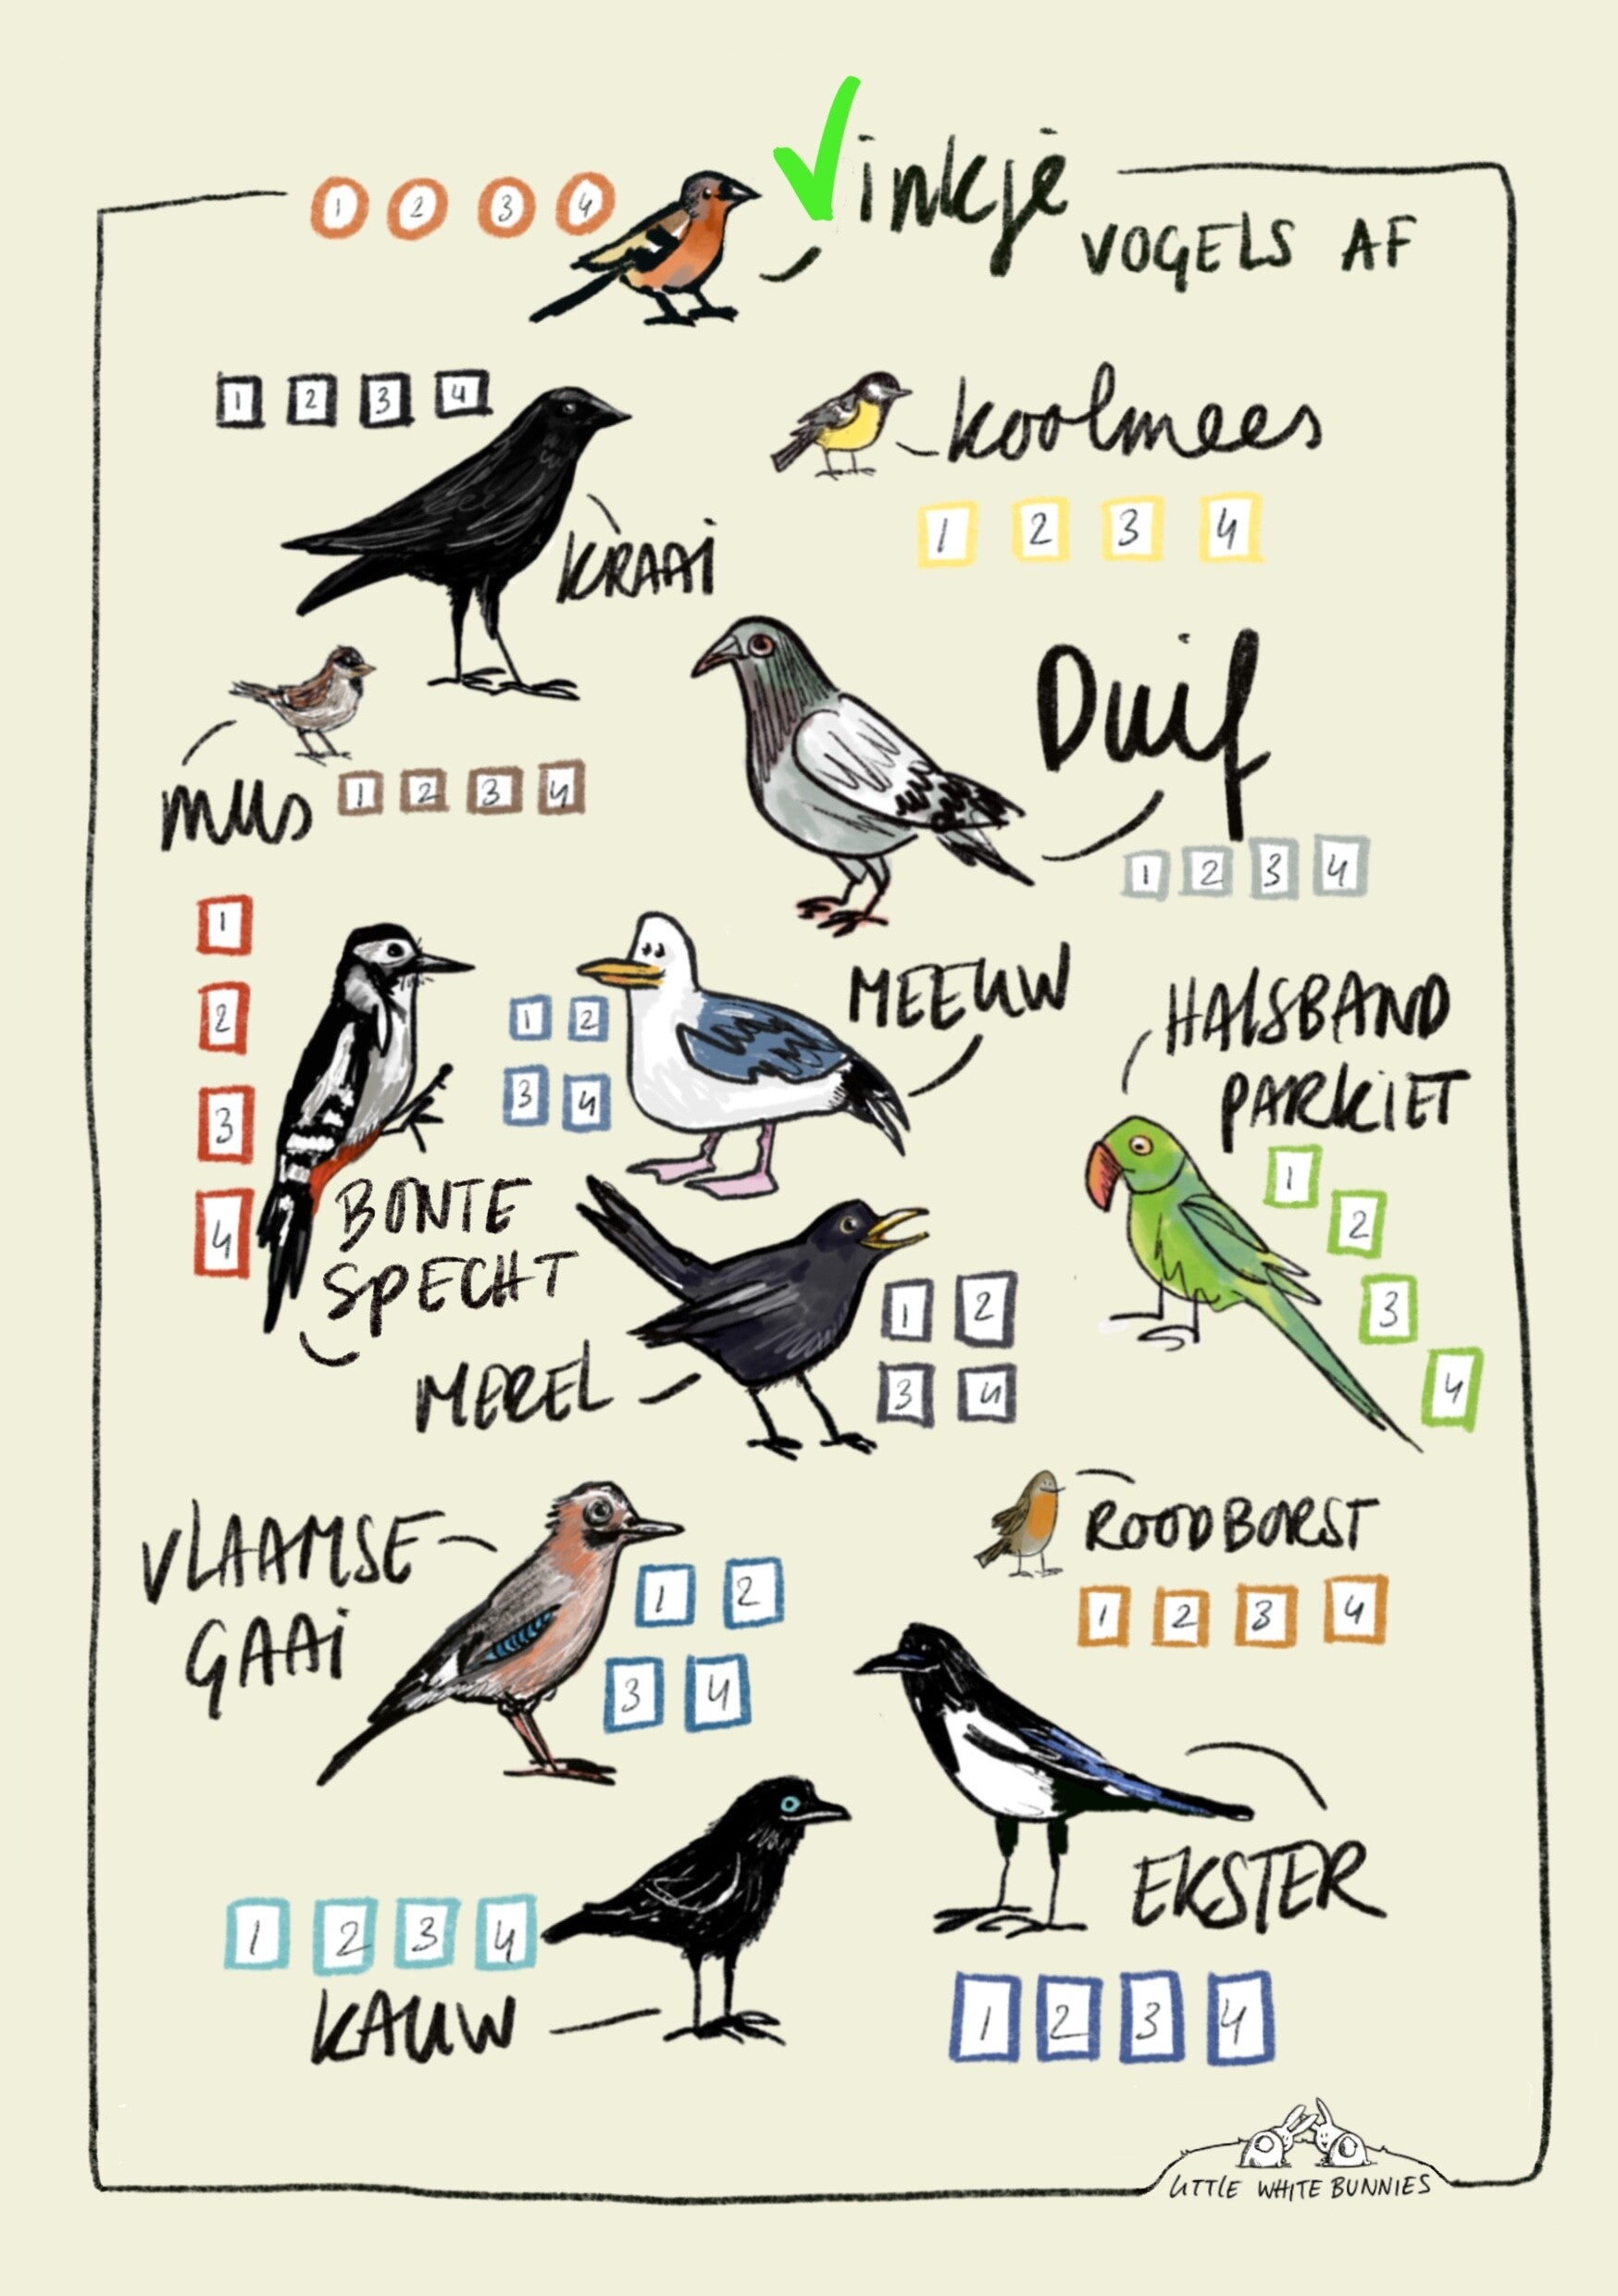 1 2 3 4
Vinkje
VOGELS AF
1 2 3 4
koolmees
1 2 3 4
KRAAI
Duif
mus
1 2 3 4
1 2 3 4
1
2
3
4
BONTE
SPECHT
1 2
3 4
MEEUW
HALSBAND
PARKIET
1
2
3
4
MEREL
1 2
3 4
VLAAMSE
GAAI
1 2
3 4
ROODBORST
1 2 3 4
EKSTER
1 2 3 4
1 2 3 4
KAUW
LITTLE WHITE BUNNIES